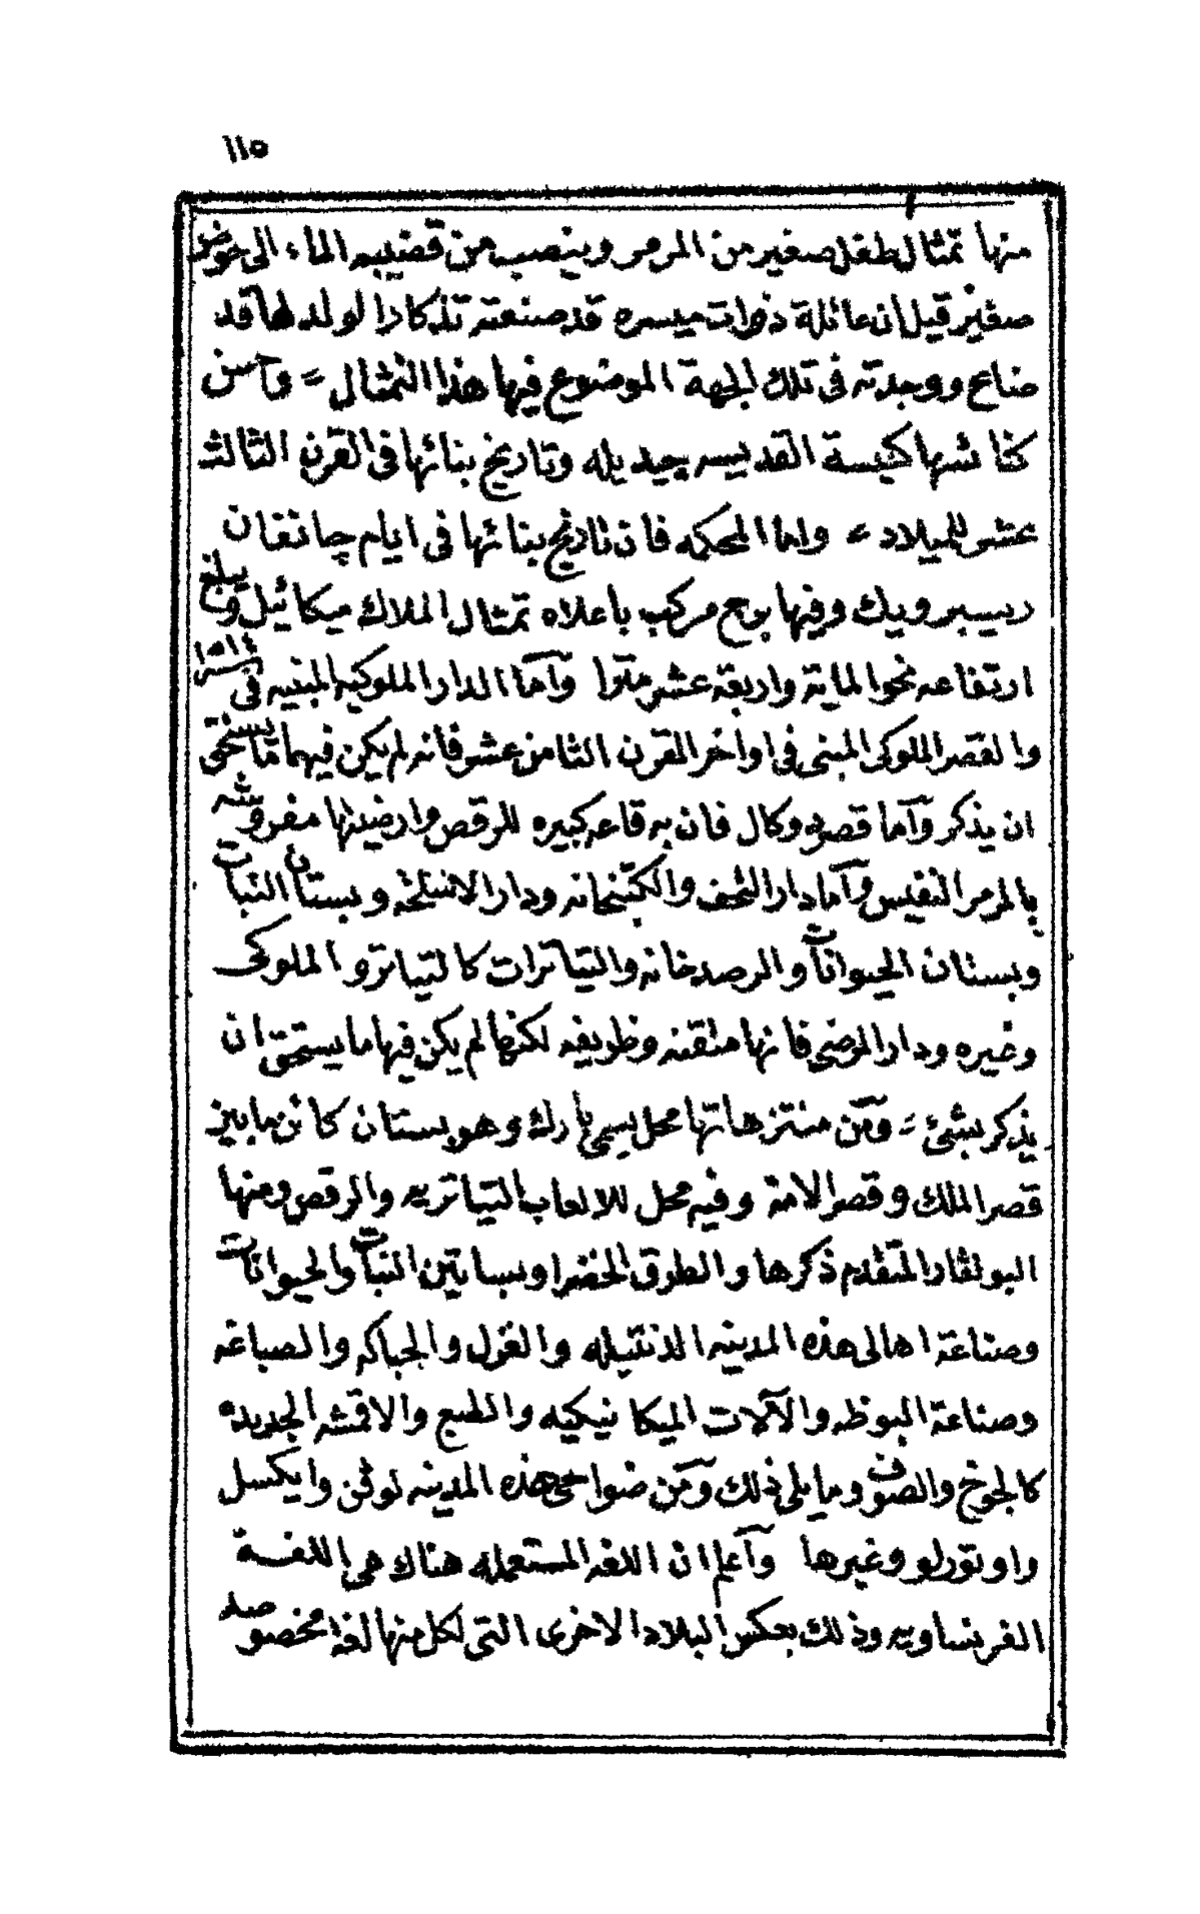 ١١٥
منها تمثال طفل صغير من المرمر وينصب من قضيبه الماء الى حوض
صغير قيل ان عائلة ذوات ميسره قد صنعته تذكارا لولد لها قد
ضاع ووجدته فى تلك الجهة الموضوع فيها هذا التمثال = واحسن
كنائسها كنيسة القديسه جيديله وتاريخ بنائها فى القرن الثالث
عشر للميلاد = واما المحكمه فان تاريخ بنائها فى ايام چانفان
ريسبرويك وفيها برج مركب باعلاه تمثال الملاك ميكائيل ويبلغ
ارتفاعه نحو الماية واربعة عشر مترا واما الدار الملوكيه المبنيه فى سنه ١٥١٤
والقصر الملوكى المبنى فى اواخر القرن الثامن عشر فانه لم يكن فيهما ما يستحق
ان يذكر واما قصر دوكال فان به قاعه كبيره للرقص وارضيتها مفروشه
بالمرمر النفيس واما دار التحف والكتبخانه ودار الانتيخه وبستان النباتات
وبستان الحيوانات والرصدخانه والتياترات كالتياترو الملوكى
وغيره ودار المرضى فانها متقنه وظريفه لكنها لم يكن فيها ما يستحق ان
يذكر بشئ = ومن منتزهاتها محل يسمى پارك وهو بستان كائن مابين
قصر الملك وقصر الامة وفيه محل للالعاب التياتريه والرقص ومنها
البولفار المتقدم ذكرها والطرق الخضرا وبساتين النباتات والحيوانات
وصناعة اهالى هذه المدينه الدنتيله والغزل والحباكه والصباغه
وصناعة البوظه والآلات الميكانيكيه والطبع والاقمشه الجديده
كالجوخ والصوف وما يلى ذلك ومن ضواحى هذه المدينه لوڤن وايكسل
واوتورلو وغيرها واعلم ان اللغه المستعمله هناك هى اللغة
الفرنساويه وذلك بعكس البلاد الاخرى التى لكل منها لغة مخصوصه